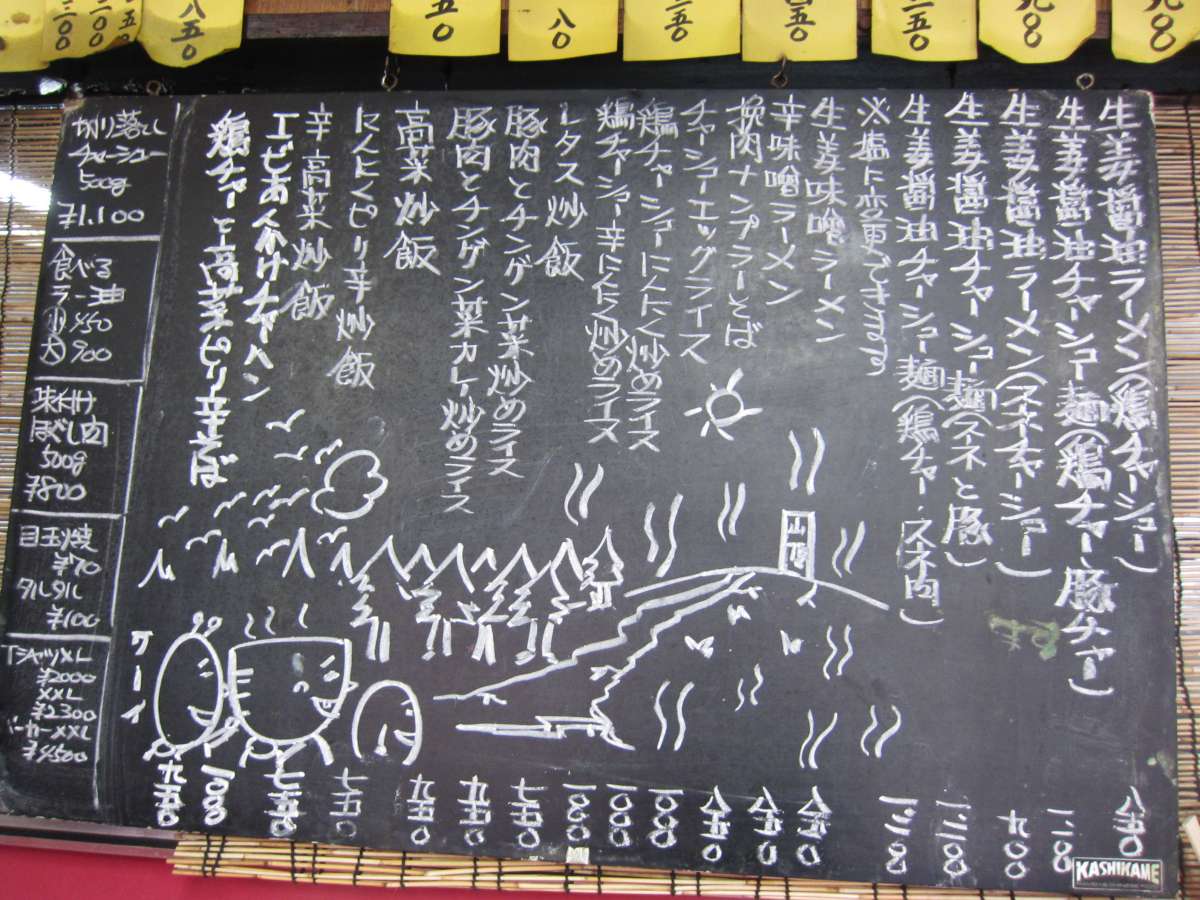 生姜醬油ラーメン(鶏チャーシュー) 八五〇
生姜醬油チャーシュー麺(鶏チャー、豚チャー) 一一〇〇
生姜醬油ラーメン(スネチャーシュー) 九〇〇
生姜醬油チャーシュー麺(スネと豚) 一二〇〇
生姜醬油チャーシュー麺(鶏チャー・スネ肉) 一二〇〇
※塩に変更できます
生姜味噌ラーメン 八五〇
辛味噌ラーメン 八五〇
挽肉ナンプラーそば 八五〇
チャーシューエッグライス
鶏チャーシューにんにく炒めライス 一〇〇〇
鶏チャーシュー辛にんにく炒めライス 一〇〇〇
レタス炒飯
豚肉とチンゲン菜炒めライス
豚肉とチンゲン菜カレー炒めライス
高菜炒飯
にんにくピリ辛炒飯
辛高菜炒飯 七五〇
エビあんかけチャーハン
鶏チャーと高菜ピリ辛そば 九五〇
山頂
ケーイ
切り落とし
チャーシュー
500g
¥1,100
食べる
ラー油
小 450
大 900
味付け
ほぐし肉
500g
¥800
目玉焼
¥70
タルタル
¥100
TシャツXL
¥2000
XXL
¥2300
パーカーXXL
¥4500
KASHIKAME